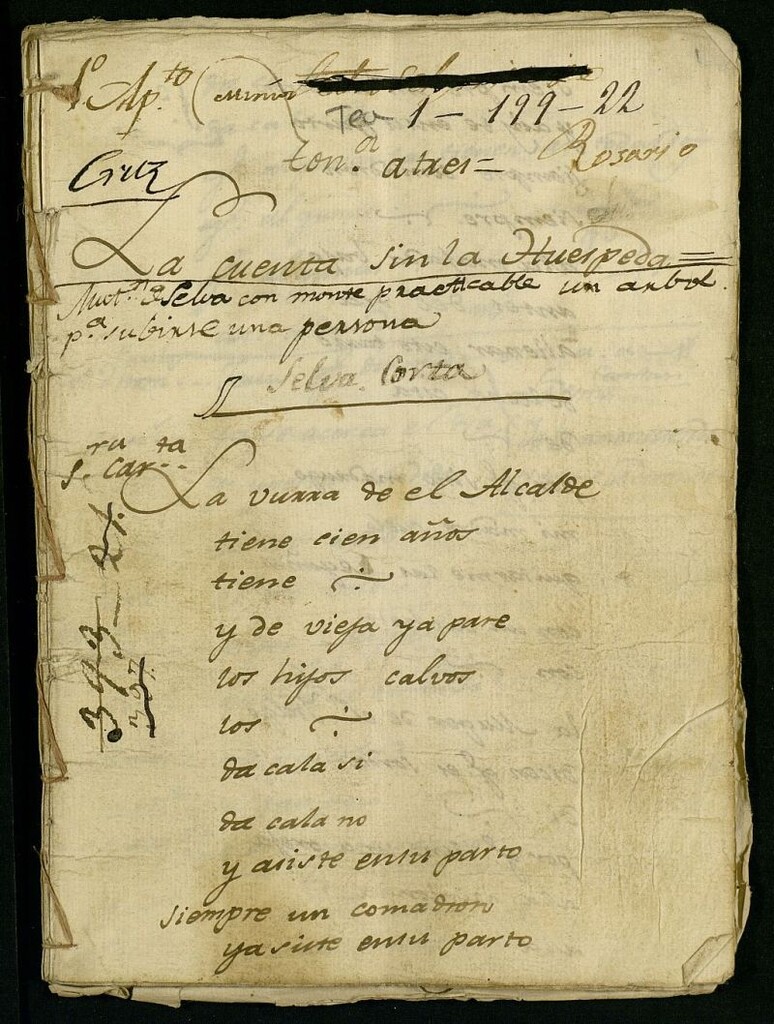 1º Apto
Tea 1-199-22
Cruz
ton.a atres=
Rosario
La cuenta sin la Huespeda=
Mutn de Selva con monte practicable un arbol.
p.a subirse una persona
Selva Corta
S.ra Car.ta
La vurra de el Alcalde
tiene cien años
tiene
y de vieja ya pare
los hijos calvos
los
da cala si
da cala no
y asiste ensu parto
siempre un comadron
yasiste ensu parto